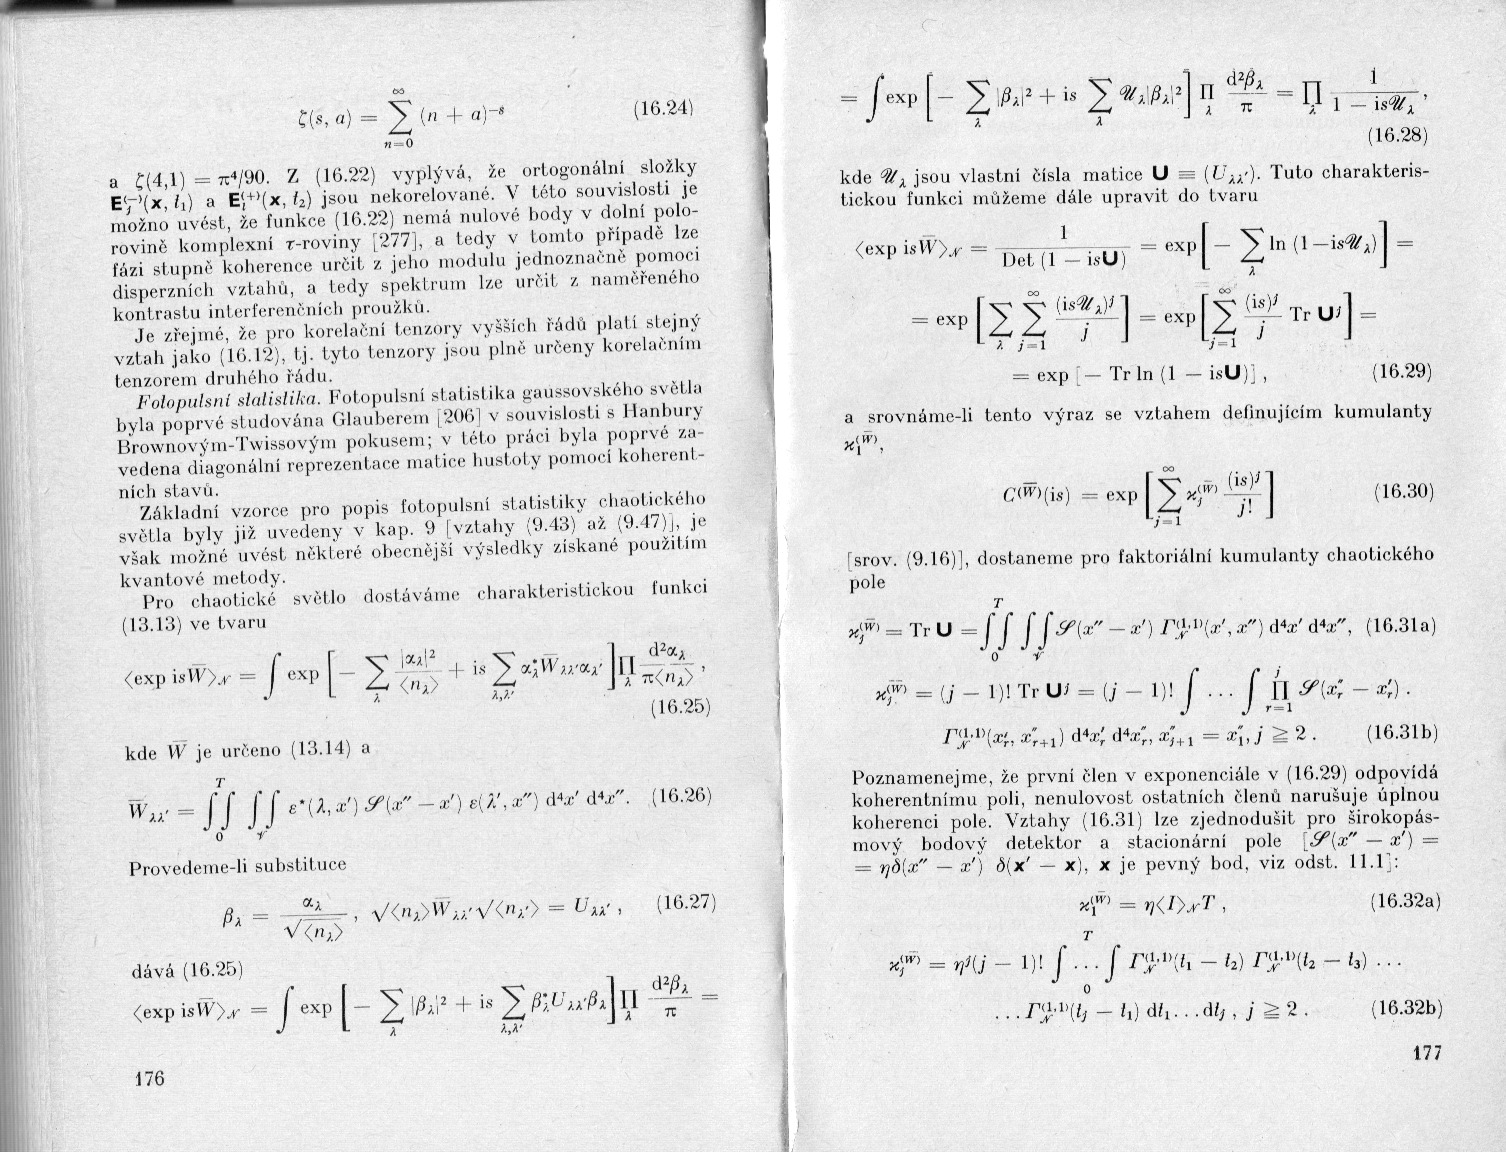 ζ(s, a) = ∑_{n=0}^{∞} (n + a)^{-s} (16.24)
a ζ(4,1) = π⁴/90. Z (16.22) vyplývá, že ortogonální složky
E_j^{(-)}(x, t₁) a E_i^{(+)}(x, t₂) jsou nekorelované. V této souvislosti je
možno uvést, že funkce (16.22) nemá nulové body v dolní polo-
rovině komplexní τ-roviny [277], a tedy v tomto případě lze
fázi stupně koherence určit z jeho modulu jednoznačně pomocí
disperzních vztahů, a tedy spektrum lze určit z naměřeného
kontrastu interferenčních proužků.
Je zřejmé, že pro korelační tenzory vyšších řádů platí stejný
vztah jako (16.12), tj. tyto tenzory jsou plně určeny korelačním
tenzorem druhého řádu.
Fotopulsní statistika. Fotopulsní statistika gaussovského světla
byla poprvé studována Glauberem [206] v souvislosti s Hanbury
Brownovým-Twissovým pokusem; v této práci byla poprvé za-
vedena diagonální reprezentace matice hustoty pomocí koherent-
ních stavů.
Základní vzorce pro popis fotopulsní statistiky chaotického
světla byly již uvedeny v kap. 9 [vztahy (9.43) až (9.47)], je
však možné uvést některé obecnější výsledky získané použitím
kvantové metody.
Pro chaotické světlo dostáváme charakteristickou funkci
(13.13) ve tvaru
⟨exp isW̅⟩_𝒩 = ∫ exp [− ∑_λ |α_λ|²/⟨n_λ⟩ + is ∑_{λ,λ'} α*_λ W̅_{λλ'} α_{λ'}] ∏_λ d²α_λ/π⟨n_λ⟩ ,
(16.25)
kde W̅ je určeno (13.14) a
W̅_{λλ'} = ∫∫_0^T ∫∫_𝒱 ε*(λ, x') 𝒮(x″ − x') ε(λ', x″) d⁴x' d⁴x″. (16.26)
Provedeme-li substituce
β_λ = α_λ/√⟨n_λ⟩ , √⟨n_λ⟩W̅_{λλ'}√⟨n_{λ'}⟩ = U_{λλ'} , (16.27)
dává (16.25)
⟨exp isW̅⟩_𝒩 = ∫ exp [− ∑_λ |β_λ|² + is ∑_{λ,λ'} β*_λ U_{λλ'} β_λ] ∏_λ d²β_λ/π =
176
= ∫ exp [− ∑_λ |β_λ|² + is ∑_λ 𝒰_λ|β_λ|²] ∏_λ d²β_λ/π = ∏_λ 1/(1 − is𝒰_λ) ,
(16.28)
kde 𝒰_λ jsou vlastní čísla matice U ≡ (U_{λλ'}). Tuto charakteris-
tickou funkci můžeme dále upravit do tvaru
⟨exp isW̅⟩_𝒩 = 1/Det (1 − isU) = exp [− ∑_λ ln (1 − is𝒰_λ)] =
= exp [∑_λ ∑_{j=1}^{∞} (is𝒰_λ)^j/j] = exp [∑_{j=1}^{∞} (is)^j/j Tr U^j] =
= exp [− Tr ln (1 − isU)] , (16.29)
a srovnáme-li tento výraz se vztahem definujícím kumulanty
ϰ_1^{(W̅)},
C^{(W̅)}(is) = exp [∑_{j=1}^{∞} ϰ_j^{(W̅)} (is)^j/j!] (16.30)
[srov. (9.16)], dostaneme pro faktoriální kumulanty chaotického
pole
ϰ_j^{(W̅)} = Tr U = ∫∫_0^T ∫∫_𝒱 𝒮(x″ − x') Γ_𝒩^{(1,1)}(x', x″) d⁴x' d⁴x″, (16.31a)
ϰ_j^{(W̅)} = (j − 1)! Tr U^j = (j − 1)! ∫ ... ∫ ∏_{r=1}^{j} 𝒮(x″_r − x'_r) .
Γ_𝒩^{(1,1)}(x'_r, x″_{r+1}) d⁴x'_r d⁴x″_r, x″_{j+1} = x″_1, j ≧ 2 . (16.31b)
Poznamenejme, že první člen v exponenciále v (16.29) odpovídá
koherentnímu poli, nenulovost ostatních členů narušuje úplnou
koherenci pole. Vztahy (16.31) lze zjednodušit pro širokopás-
mový bodový detektor a stacionární pole [𝒮(x″ − x') =
= ηδ(x″ − x') δ(x' − x), x je pevný bod, viz odst. 11.1]:
ϰ_1^{(W̅)} = η⟨I⟩_𝒩 T , (16.32a)
ϰ_j^{(W̅)} = η^j(j − 1)! ∫ ... ∫_0^T Γ_𝒩^{(1,1)}(t₁ − t₂) Γ_𝒩^{(1,1)}(t₂ − t₃) ...
...Γ_𝒩^{(1,1)}(t_j − t₁) dt₁...dt_j , j ≧ 2 . (16.32b)
177